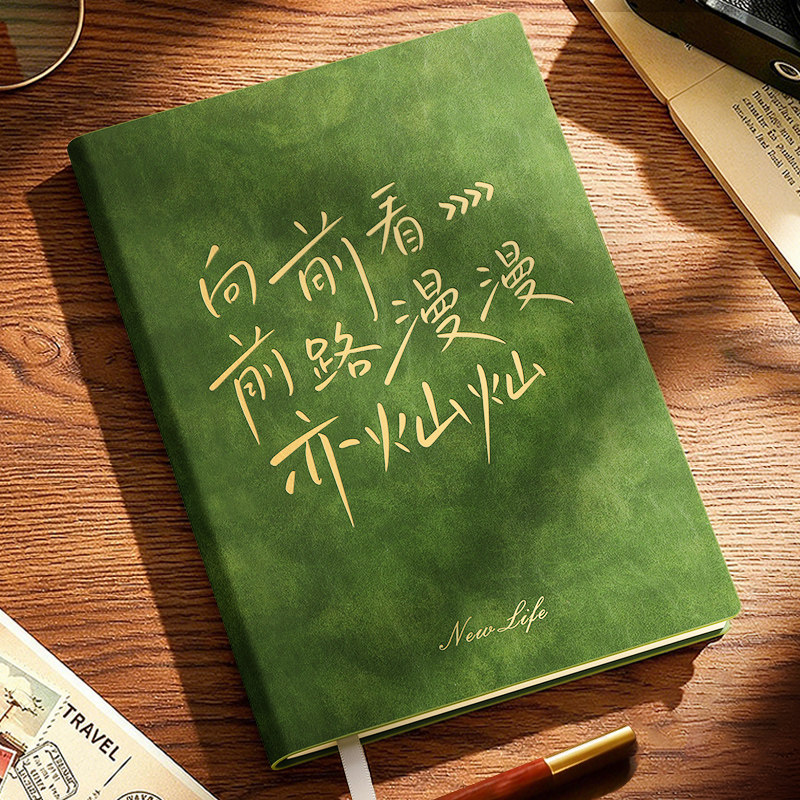 向前看>>>>
前路漫漫
亦灿灿
New Life
TRAVEL